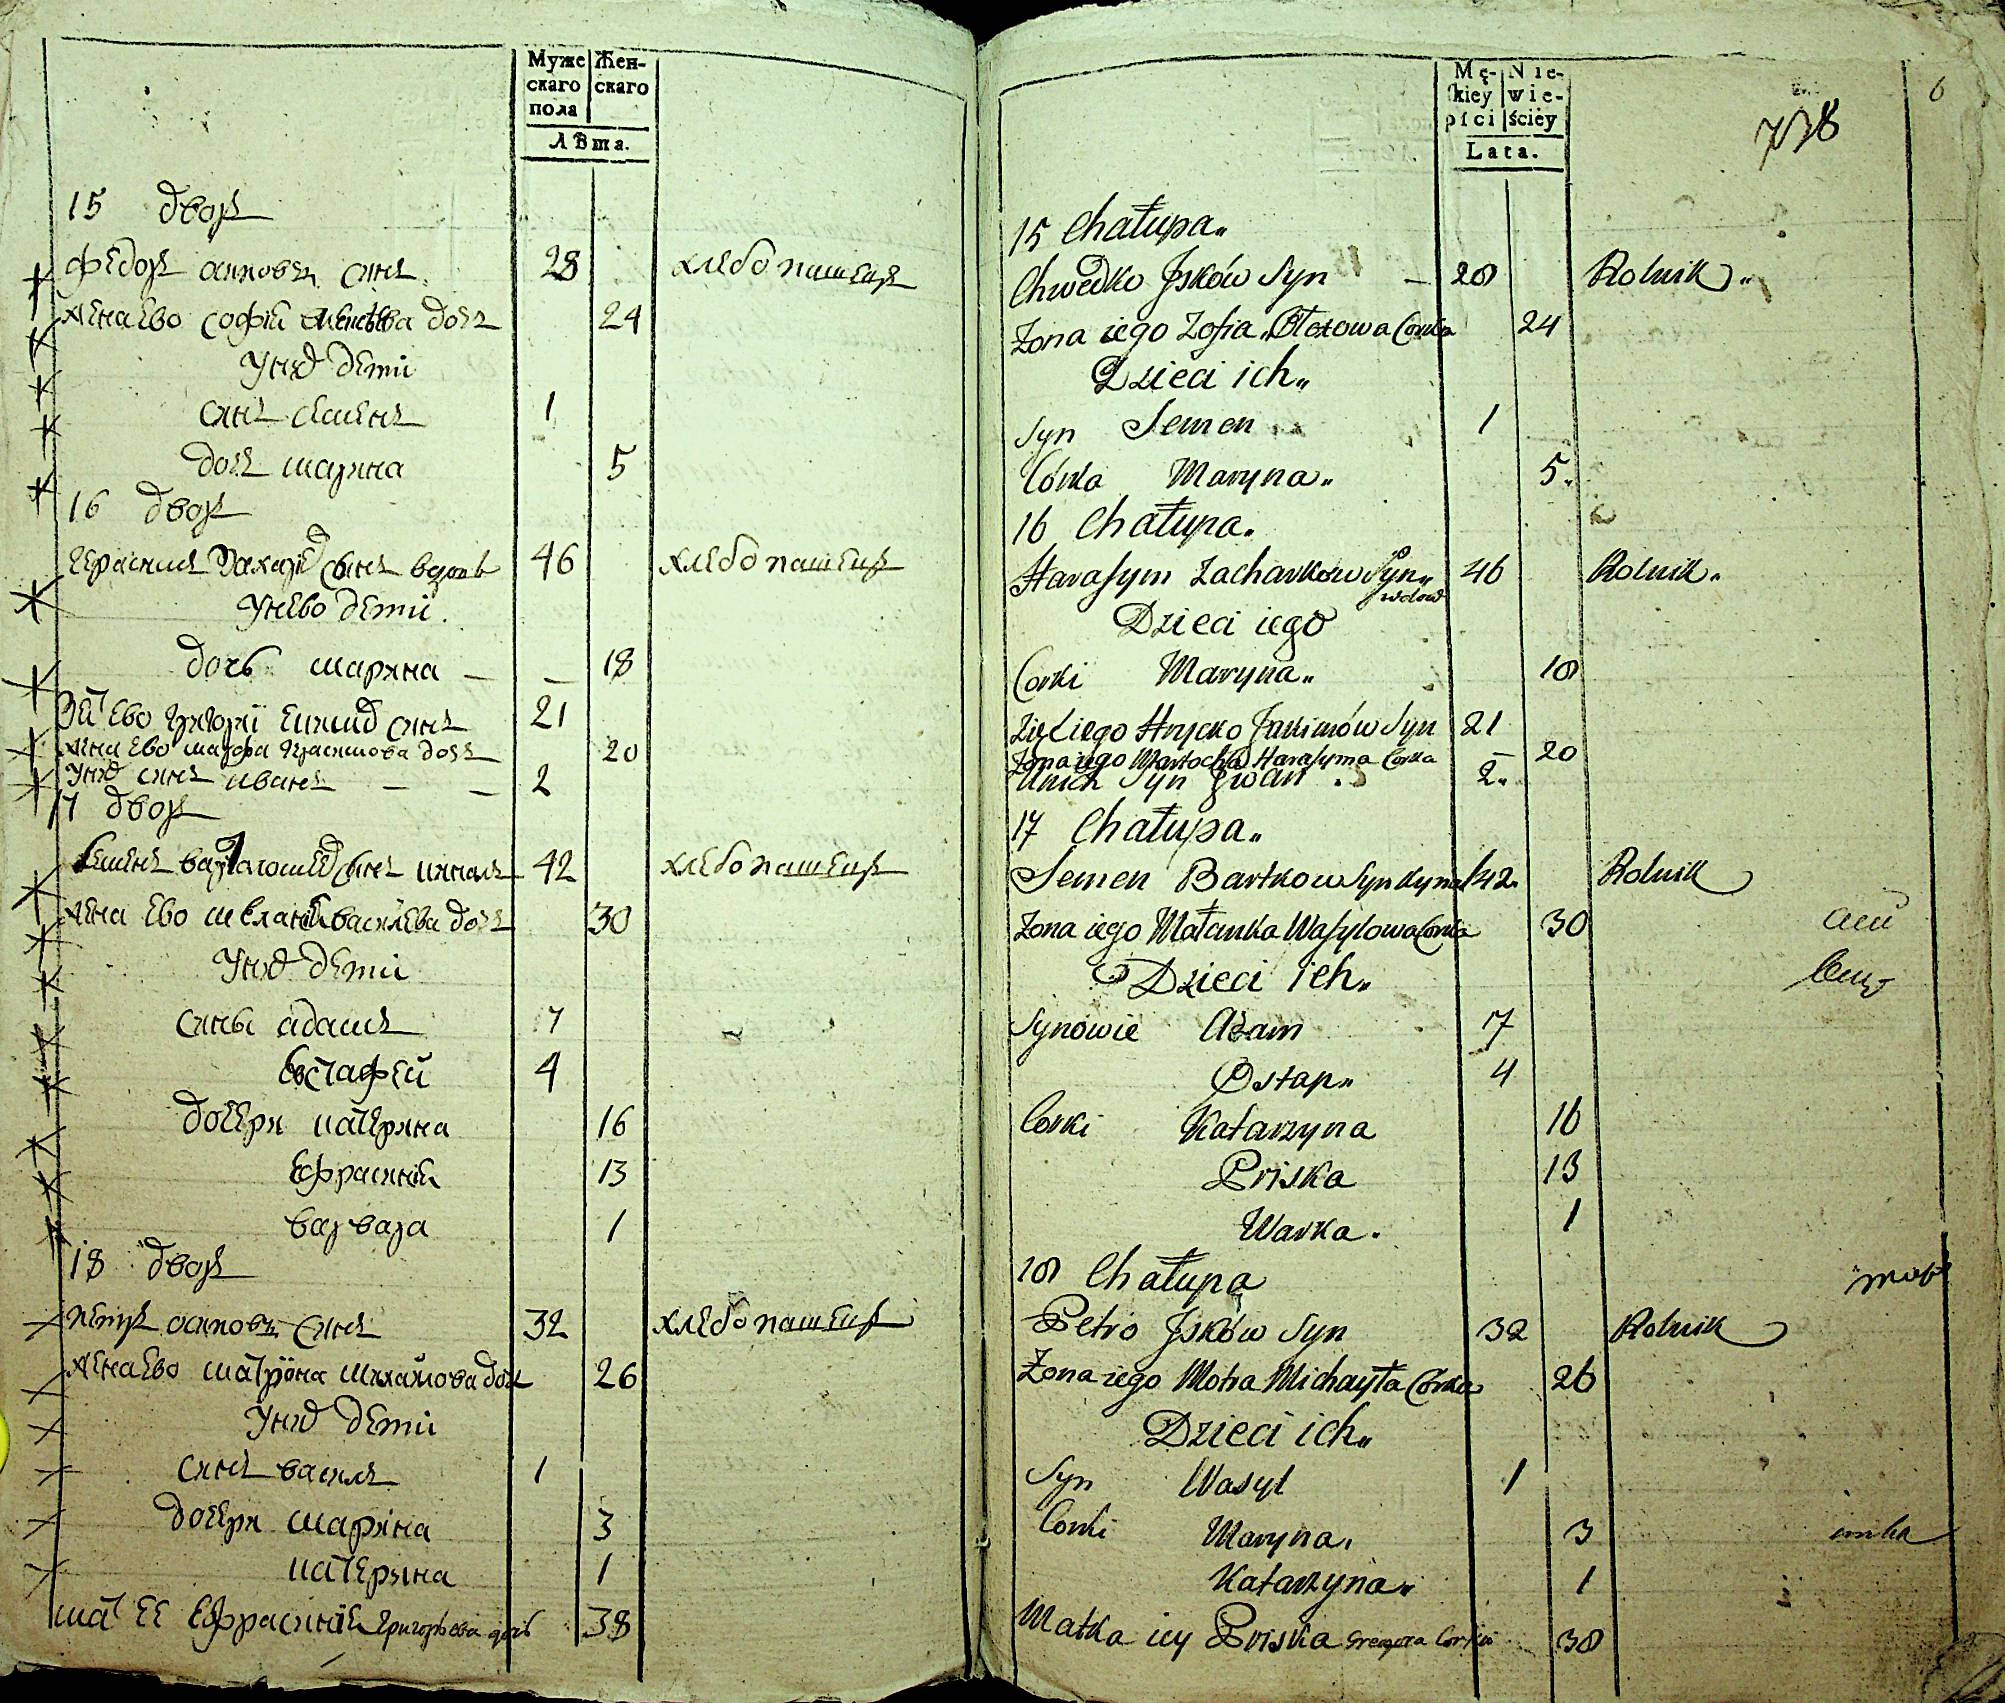 Муже
скаго
пола
Жен-
скаго
Лѣта.
15 дворъ
Федоръ осиповъ синъ 28 хлебопашецъ
жена ево софиѣ дочъ 24
У нихъ дети
синъ семенъ 1
дочъ марина 5
16 дворъ
Герасимъ Захаріевъ синъ вдовъ 46 хлебопашецъ
У нево дети.
дочь марина — — 18
Зать ево григорій екимовъ синъ 21
жена ево марфа герасимова дочъ 20
У нихъ синъ иванъ — — 2
17 дворъ
Семенъ вартоломеевъ синъ 42 хлебопашецъ
жена ево мелания василева дочъ 30
У нихъ дети
сины адамъ 7
евстафей 4
дочери катерина 16
ефрасиния 13
варвара 1
18 дворъ
петръ осиповъ синъ 32 хлебопашецъ
жена ево матрона михайлова дочъ 26
У нихъ дети
синъ василъ 1
дочери марина 3
катерына 1
мать ее ефрасиния григорьева дочь 38
Mę-
skiey
płci
Nie-
wie-
ściéy
Lata.
738
6
15 Chałupa„
Chwedko Jsków Syn — 28 Rolnik„
Zona iego Zofia Corka 24
Dzieci ich„
Syn Semen 1
Córka Maryna„ 5.
16 Chałupa.
Harasym Zacharkow Syn„ wdow 46 Rolnik.
Dzieci iego
Corki Maryna„ 18
Zięć iego Hrycko Jakimów Syn 21
Zona iego Martocha Harasyma Corka — 20
Unich Syn Jwan 2.
17 Chałupa„
Semen Bartkow Syn 42. Rolnik
Zona iego Małanka Wasylowa Corka 30
Dzieci ich„
Synowie Adam 7
Ostap„ 4
Corki Katarzyna 16
Priska 13
Warka. 1
18 Chałupa
Petro Jsków Syn 32 Rolnik
Zona iego Motra Michayła Corka 26
Dzieci ich„
Syn Wasyl 1
Corki Maryna. 3
Katarzyna„ 1
Matka iey Priska Gregora Corka 38